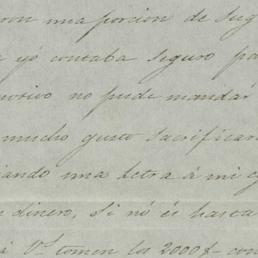 ron una porcion de sug
yo contaba seguro pa
motivo no pude mandar
mucho gusto sacrificar
ando una letra á mi c
dinero, si nó és hasta
á Vs. tomen los 2000$ con